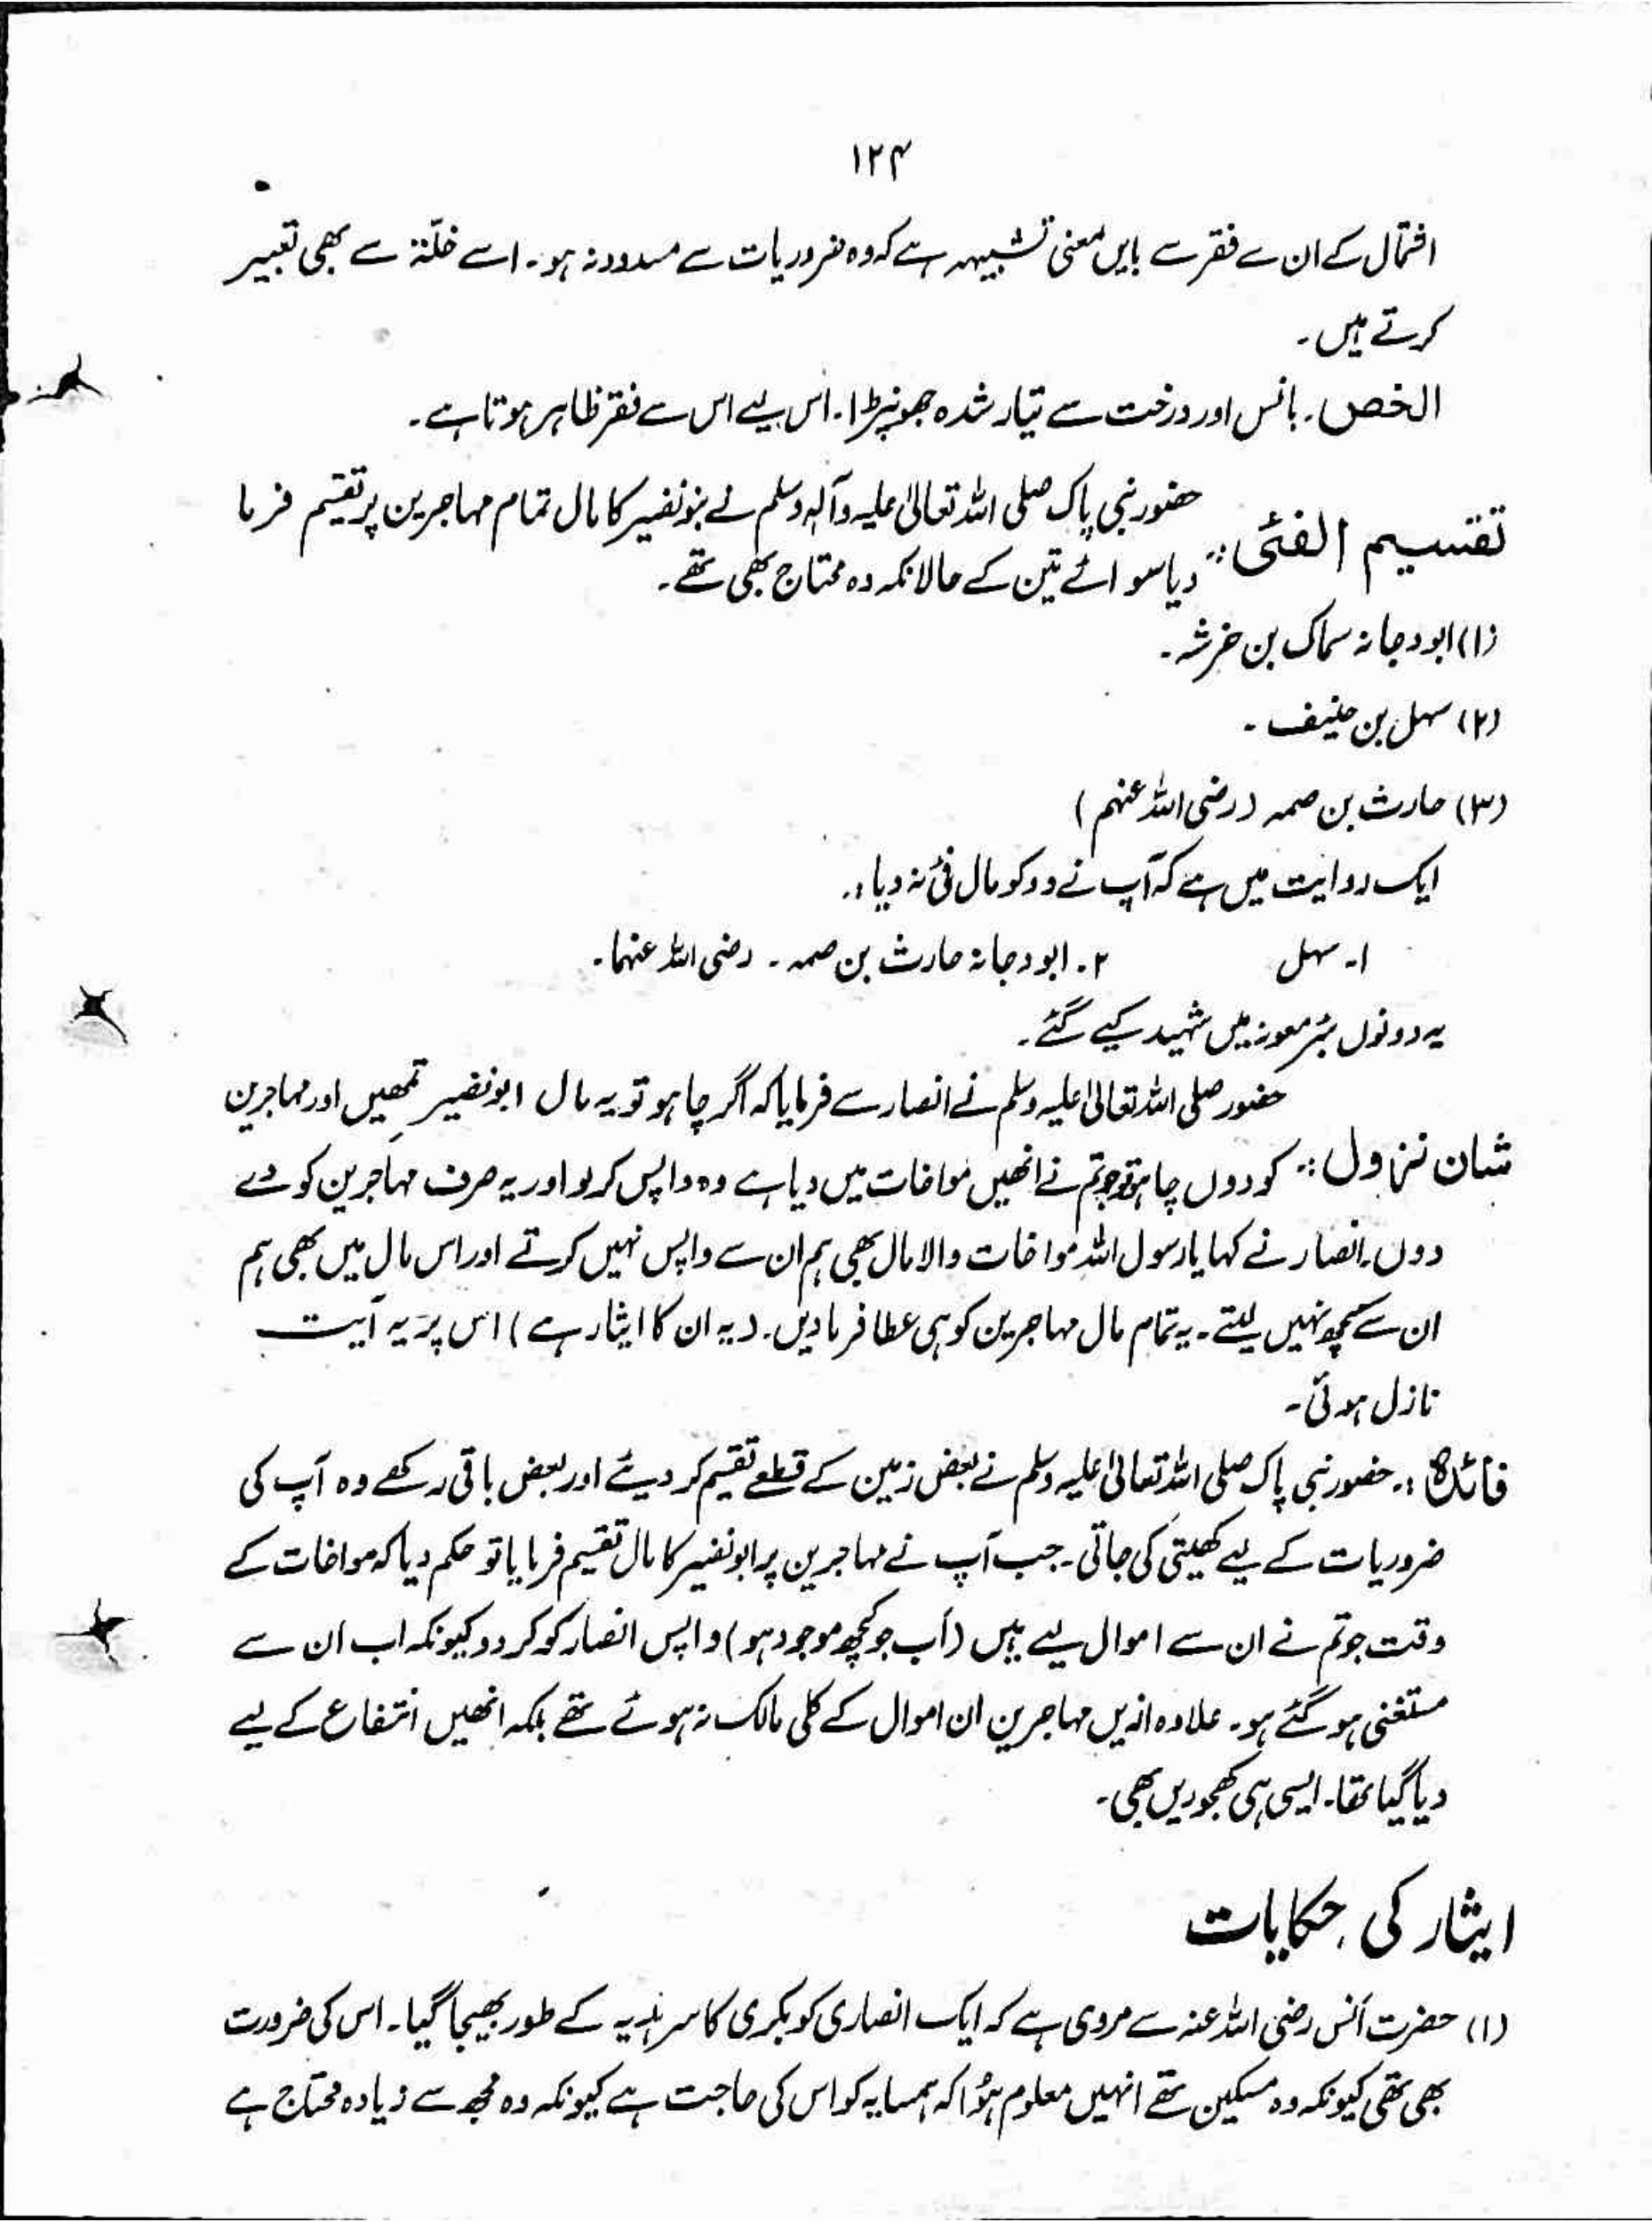 ۱۲۴
افتمال کے ان سے فقر سے بایں معنی تشبیہہ ہے کہ وہ ضروریات سے مسدود نہ ہو۔ اسے خلّۃ سے بھی تعبیر
کرتے ہیں۔
الخص۔ بانس اور درخت سے تیار شدہ جھونپڑا۔ اس لیے اس سے فقر ظاہر ہوتا ہے۔
تقسیم الفئی:۔ حضور نبی پاک صلی اللہ تعالیٰ علیہ وآلہٖ وسلم نے بنو نضیر کا مال تمام مہاجرین پر تقسیم فرما
دیا سوائے تین کے حالانکہ وہ محتاج بھی تھے۔
(۱) ابو دجانہ سماک بن خرشہ۔
(۲) سہل بن حنیف۔
(۳) حارث بن صمہ (رضی اللہ عنہم)
ایک روایت میں ہے کہ آپ نے دو کو مال فئ نہ دیا:۔
۱۔ سہل ۲۔ ابو دجانہ حارث بن صمہ۔ رضی اللہ عنہما۔
یہ دونوں بئر معونہ میں شہید کیے گئے۔
حضور صلی اللہ تعالیٰ علیہ وسلم نے انصار سے فرمایا کہ اگر چاہو تو یہ مال ابو نضیر تمھیں اور مہاجرین
شان نزول:۔ کو دوں چاہو تو جو تم نے انھیں مواخات میں دیا ہے وہ واپس کر لو اور یہ صرف مہاجرین کو دے
دوں۔ انصار نے کہا یا رسول اللہ مواخات والا مال بھی ہم ان سے واپس نہیں کرتے اور اس مال میں بھی ہم
ان سے کچھ نہیں لیتے۔ یہ تمام مال مہاجرین کو ہی عطا فرما دیں۔ (یہ ان کا ایثار ہے) اس پر یہ آیت
نازل ہوئی۔
فائدہ:۔ حضور نبی پاک صلی اللہ تعالیٰ علیہ وسلم نے بعض زمین کے قطعے تقسیم کر دیئے اور بعض باقی رکھے وہ آپ کی
ضروریات کے لیے کھیتی کی جاتی۔ جب آپ نے مہاجرین پر ابو نضیر کا مال تقسیم فرمایا تو حکم دیا کہ مواخات کے
وقت جو تم نے ان سے اموال لیے ہیں (اب جو کچھ موجود ہو) واپس انصار کو کر دو کیونکہ اب ان سے
مستغنی ہو گئے ہو۔ علاوہ ازیں مہاجرین ان اموال کے کلی مالک نہ ہوئے تھے بلکہ انھیں انتفاع کے لیے
دیا گیا تھا۔ ایسی ہی کھجوریں بھی۔
ایثار کی حکایات
(۱) حضرت اَنس رضی اللہ عنہ سے مروی ہے کہ ایک انصاری کو بکری کا سر ہدیہ کے طور بھیجا گیا۔ اس کی ضرورت
بھی تھی کیونکہ وہ مسکین تھے انہیں معلوم ہؤا کہ ہمسایہ کو اس کی حاجت ہے کیونکہ وہ مجھ سے زیادہ محتاج ہے